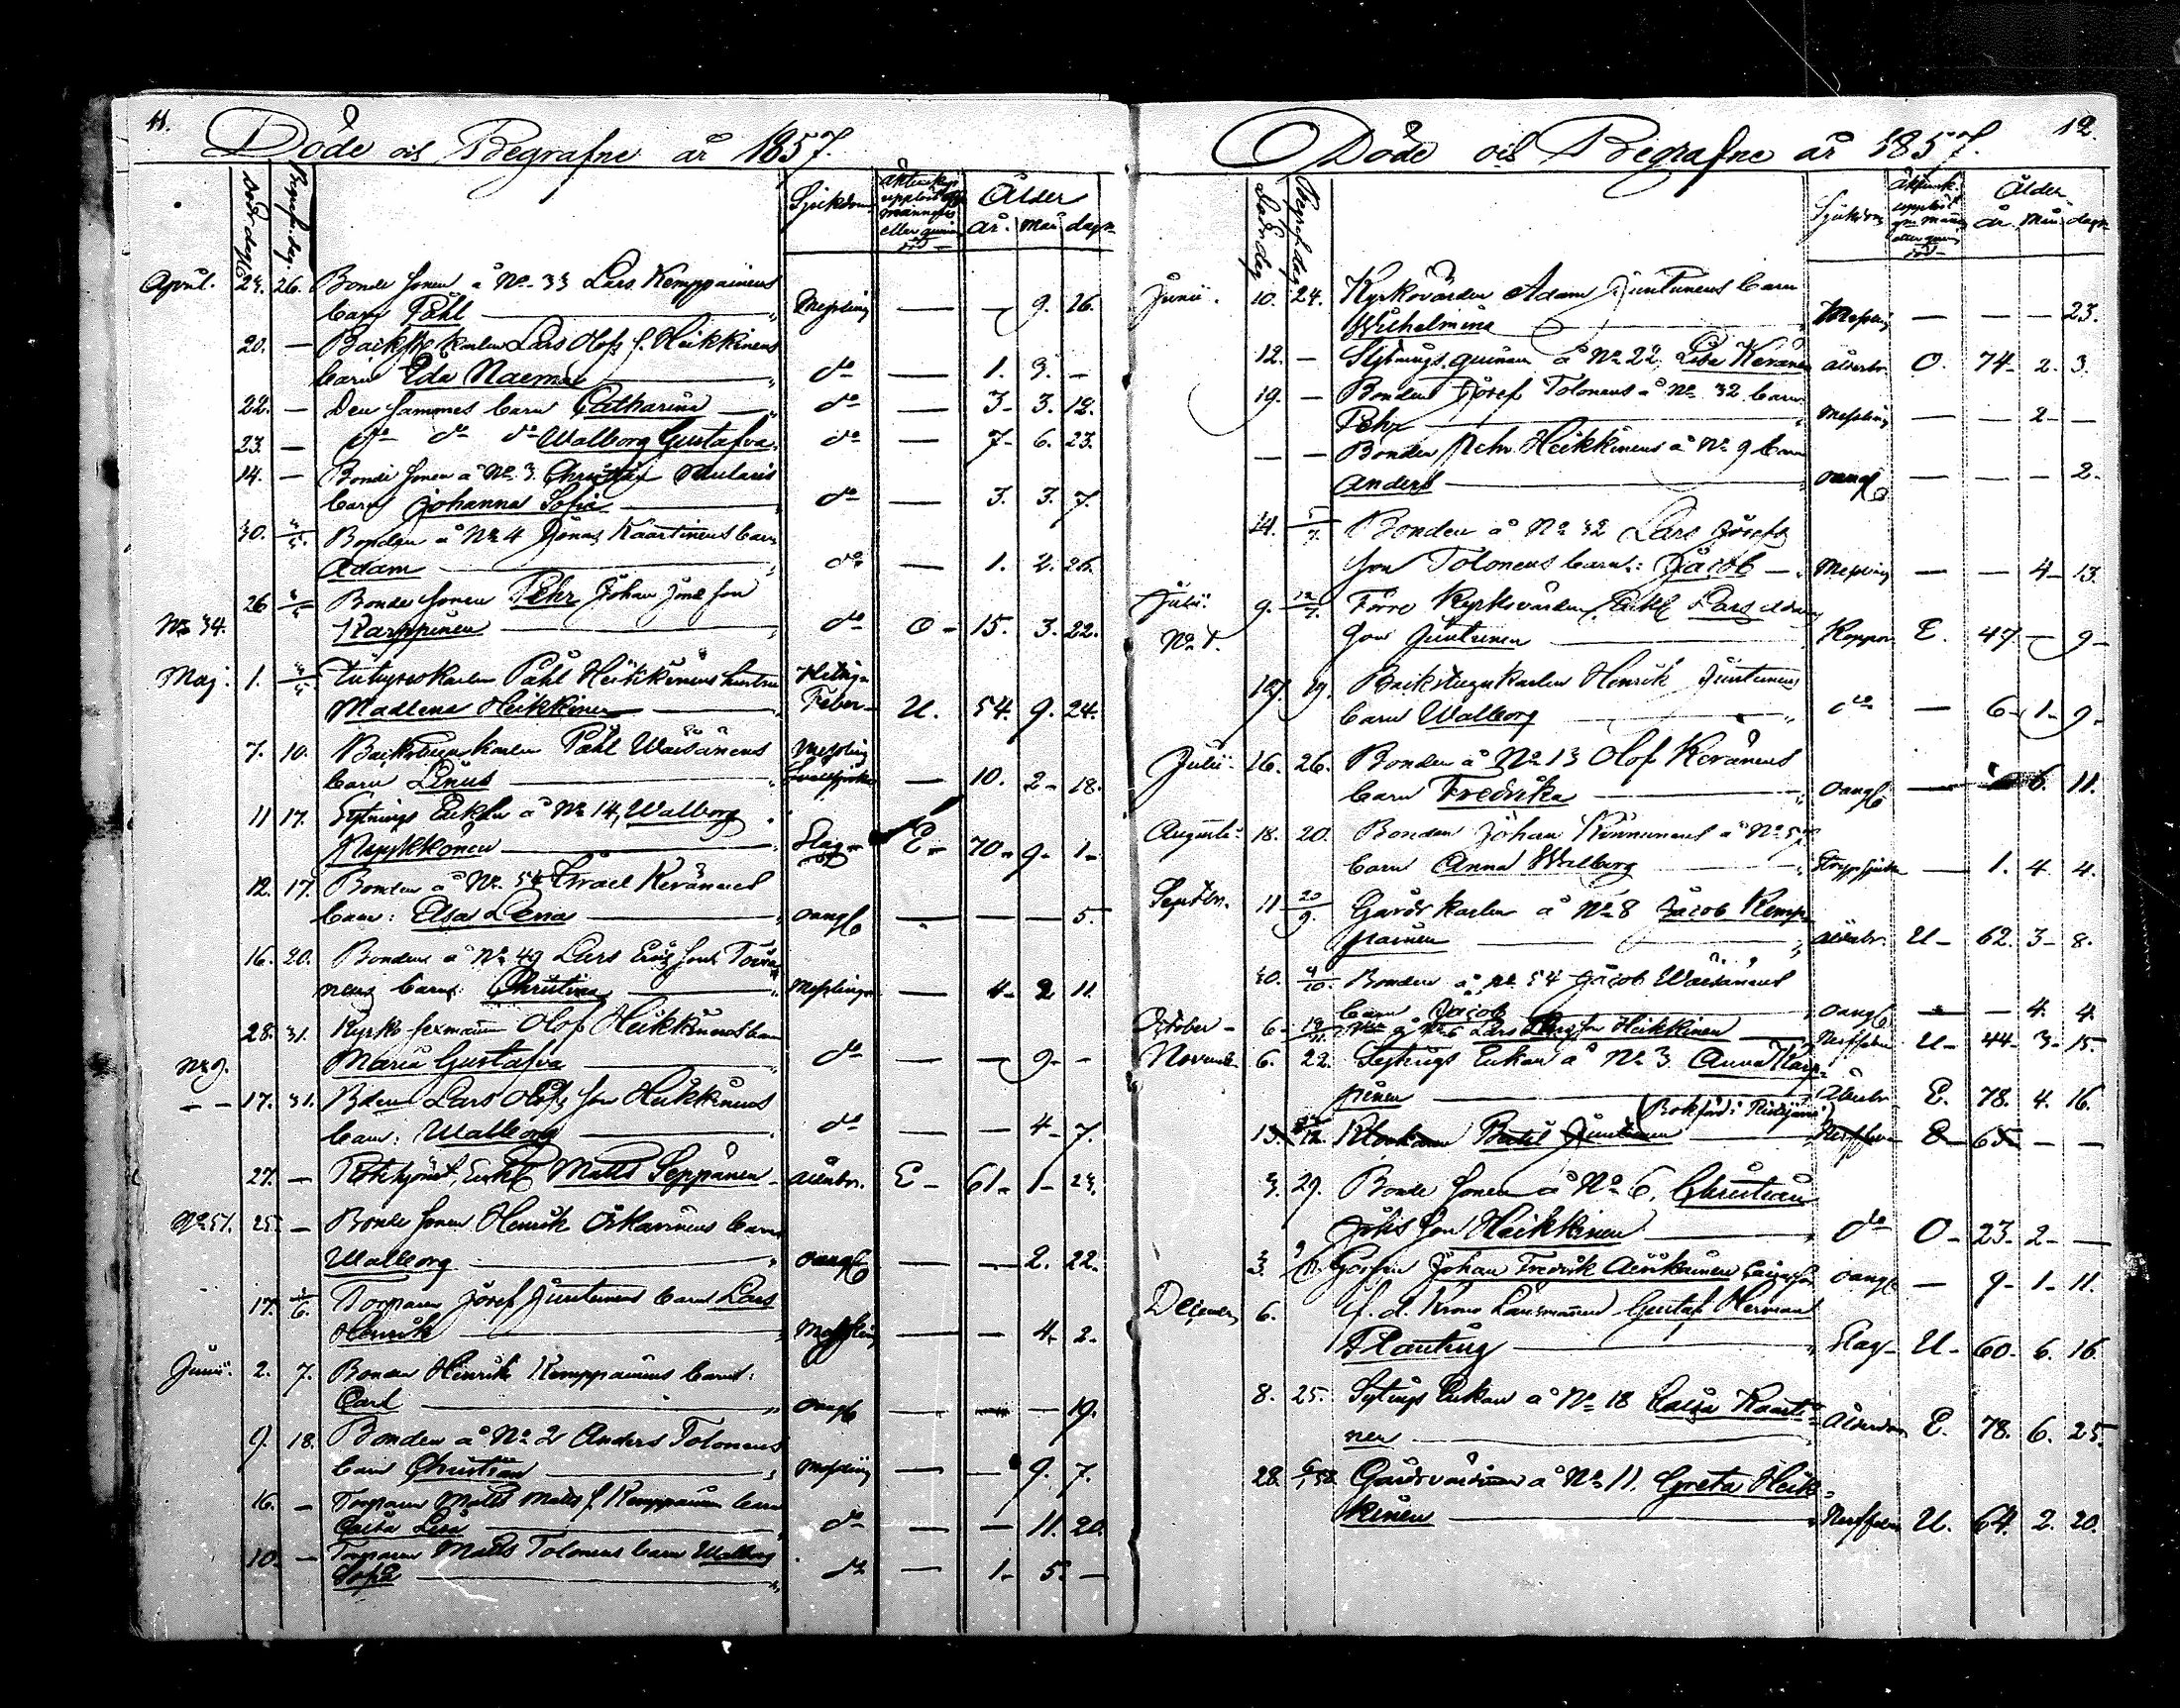 11.
Döde och Begrafne år 1857.
Döds dag Begrafn. dag. Sjukdom Ålder
år. mån dagar
April. 24. 26. Bonde sonen å No 33 Lars Kemppainens
barn Påhl — Messling — — 9. 16.
20. — Backstu karlen Lars Olofs s. Heikkinens
barn Eda Naema — do — 1. 3. —
22. — Den sammes barn Catharina — do — 3. 3. 12.
23. — do do do Walborg Gustafva do — 7. 6. 23.
14. — Bonde sonen å No 3. Christian
barn Johanna Sofia — do — 3. 3. 7.
30. Bonden å No 4 Jonas Kaartinens barn
Adam — do — 1. 2. 26.
26 Bonde sonen Pehr Johan Jons son
No 34. Karppinen — do O — 15. 3. 22.
Maj. 1. Påhl Heikkinens hustru
Madlena Heikkinen — Feber U. 54. 9. 24.
7. 10. Backstugu karlen Påhl Waisänens Messling
barn Linus — — 10. 2. 18.
11 17. Sytnings Enkan å No 14, Walborg
Pyykkönen — Slag E — 70. 9. 1.
12. 17. Bonden å No 54 Israel Keränens
barn: Elsa Lena — oangf — — — 5.
16. 20. Bonden å No 49 Lars Erics sons Tolo
nens barn: Christina — Messlingen — 4. 2 11.
28. 31. Kyrko sexmann Olof Heikkinens barn
No 9. Maria Gustafva — do — — 9. —
— — 17. 31. Bden Lars Olofs son Heikkinens
barn: Walborg — do — — 4. 7.
27. — Rotehjonet, Enkl Matts Seppänen ålderdr. E — 61. 1. 23.
No 51. 25. — Bonde sonen Henrik Oikarinens barn
Walborg — oangf — — 2. 22.
17. Torparen Josef Juntunens barn Lars
Henrik — Messling — — 4. 2.
Junii. 2. 7. Bonden Henrik Kemppainens barn:
Carl — oangf — — 19.
9. 18. Bonden å No 2 Anders Tolonens
barn Christian — Messling — — 9. 7.
16. — Torparen Matts Matts s. Kemppainen barn
Caisa Lisa — do — — 11. 20.
10. — Torparen Matts Tolonens barn Walborg
Sofia — do — 1. 5. —
12.
Döde och Begrafne år 1857.
Döds dag Begrafn. dag Sjukdom Ålder
år mån dagar
Junii. 10. 24. Kyrkovärden Adam Juntunens barn
Wilhelmina — Messling — — — 23.
12. — Sytnings quinnan å No 22, Lisa Keränen ålderdr. O. 74. 2. 3.
19. — Bonden Josef Tolonens å No 32 barn
Pehr — Messling — — 2 —
— — Bonden Pehr Heikkinens å No 9 barn
Anders — oangf — — — 2.
24. Bonden å No 32 Lars Josefs
son Tolonens barn: Jacob — Messling — — 4. 13.
Julii. 9. Förre Kyrkovärden, Enkl Lars Adams
son Juntunen — Koppor E. 47. — 9.
17. 19. Backstugukarlen Henrik Juntunens
barn Walborg — do — 6. 1. 9.
Julii. 16. 26. Bonden å No 13 Olof Keränens
barn Fredrika — oangf — 6. 11.
Augusti. 18. 20. Bonden Johan Kinnunens å No 57
barn Anna Walborg — — 1. 4 4.
Septbr. 11 20/9. Gårds karlen å No 8 Jacob Kemp-
painen — ålderdr. U — 62. 3. 8.
30. 4/10. Bonden å No 54 Jacob Waisänens
barn Jacob — oangf — — 4. 4.
October — 6 å No 6 Lars Larsson Heikkinen — Nerffeber U — 44. 3. 15.
November 6. 22. Sytnings Enkan å No 3 Anna Karp-
pinen — Ålderdr. E. 78. 4. 16.
(Bokförd i Ristijärvi)
13. Bertil Juntunen — Nerffeber E — 65 — —
3. 29. Bonde sonen å No 6. Christian
Johs son Heikkinen — do O — 23. 2. —
3. Gossen Johan Fredrik oangf — 9. 1. 11.
December 6. f. d. Krono Länsmannen Gustaf Herman
Planting — Slag U — 60. 6. 16.
8. 25. Sytnings Enkan å No 18 Caisa Kaarti-
nen — Ålderdom E. 78. 6. 25.
28. Gårdsvärdinnan å No 11. Greta Heik-
kinen — Nerffeber U. 64. 2. 20.